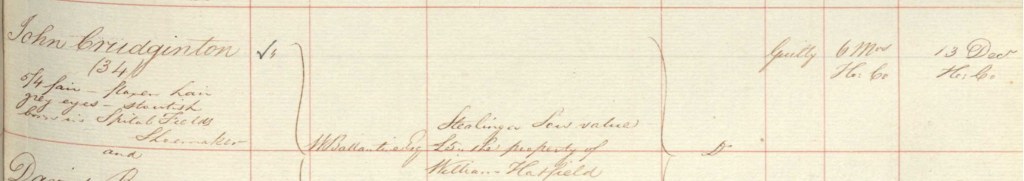 John Crudginton
(34)
5/4 fair - flaxen hair
grey eyes - stoutish
born in Spital Fields
Shoemaker
and
W Ballantine Esq
Stealing a Sow value
the property of
William Hatfield
Do
Guilty
6 Mos
Ho: Co
13 Decr
Ho: Co